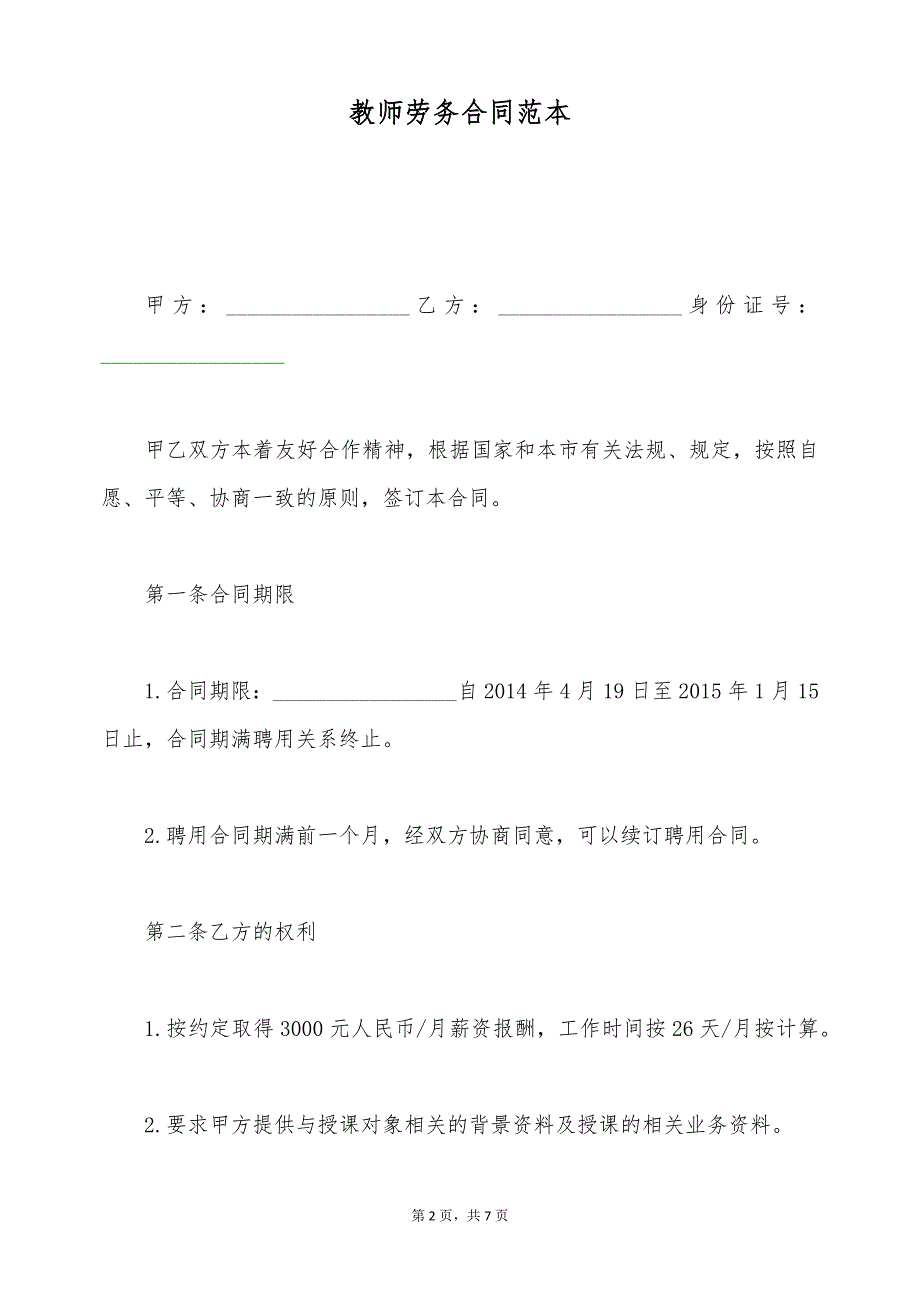 教师劳务合同范本
甲方：_________________乙方：_________________身份证号：
_________________
甲乙双方本着友好合作精神，根据国家和本市有关法规、规定，按照自
愿、平等、协商一致的原则，签订本合同。
第一条合同期限
1.合同期限:_________________自2014年4月19日至2015年1月15
日止，合同期满聘用关系终止。
2.聘用合同期满前一个月，经双方协商同意，可以续订聘用合同。
第二条乙方的权利
1.按约定取得3000元人民币/月薪资报酬，工作时间按26天/月按计算。
2.要求甲方提供与授课对象相关的背景资料及授课的相关业务资料。
第2页，共7页